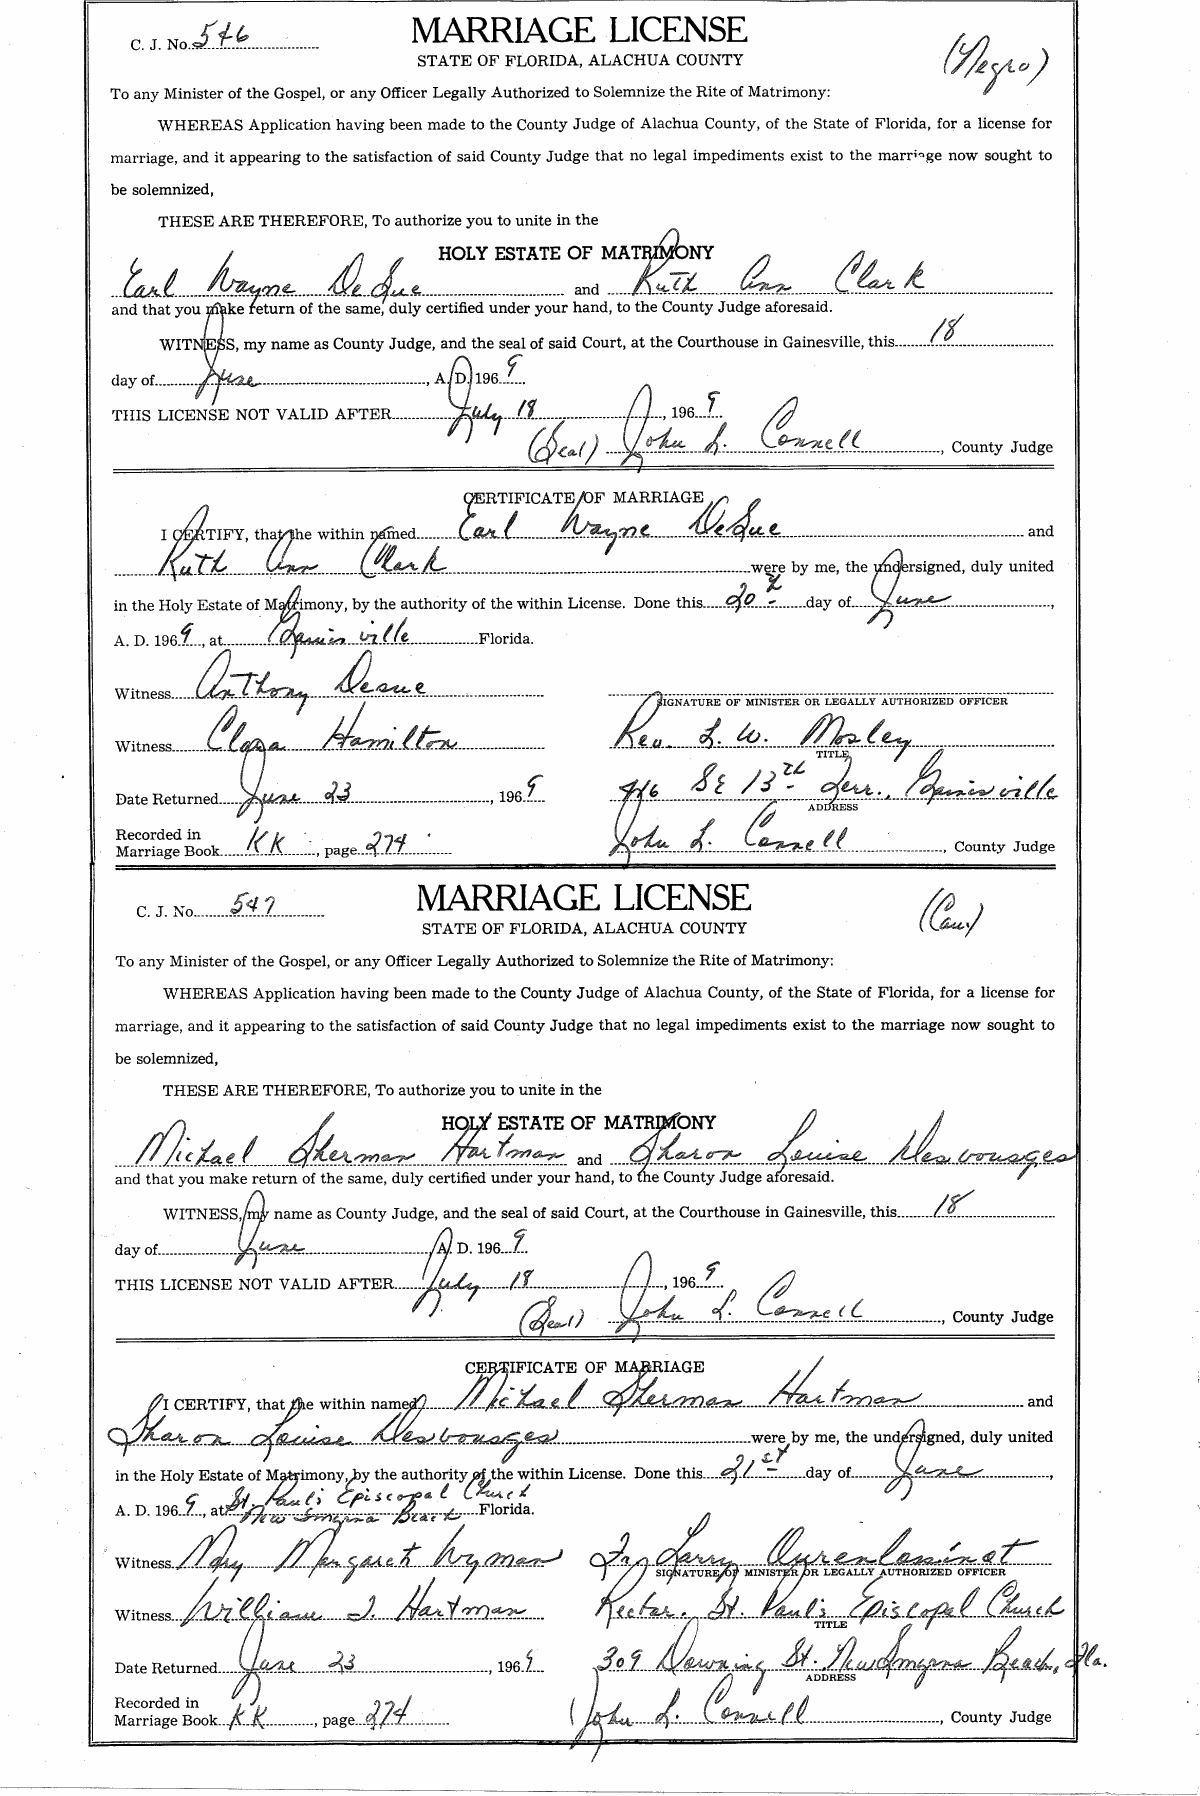 C. J. No. 546
MARRIAGE LICENSE
STATE OF FLORIDA, ALACHUA COUNTY
(Negro)
To any Minister of the Gospel, or any Officer Legally Authorized to Solemnize the Rite of Matrimony:
WHEREAS Application having been made to the County Judge of Alachua County, of the State of Florida, for a license for
marriage, and it appearing to the satisfaction of said County Judge that no legal impediments exist to the marriage now sought to
be solemnized,
THESE ARE THEREFORE, To authorize you to unite in the
HOLY ESTATE OF MATRIMONY
Earl Wayne DeSue and Ruth Ann Clark
and that you make return of the same, duly certified under your hand, to the County Judge aforesaid.
WITNESS, my name as County Judge, and the seal of said Court, at the Courthouse in Gainesville, this 18
day of June, A. D. 1969
THIS LICENSE NOT VALID AFTER July 18, 1969
(Seal) John L. Connell, County Judge
CERTIFICATE OF MARRIAGE
I CERTIFY, that the within named Earl Wayne DeSue and
Ruth Ann Clark were by me, the undersigned, duly united
in the Holy Estate of Matrimony, by the authority of the within License. Done this 20th day of June,
A. D. 1969, at Gainisville Florida.
Witness Anthony Desue
SIGNATURE OF MINISTER OR LEGALLY AUTHORIZED OFFICER
Witness Clara Hamilton Rev. L. W. Mosley
TITLE
Date Returned June 23, 1969 716 SE 13th Terr., Gainisville
ADDRESS
Recorded in
Marriage Book KK, page 274 John L. Connell, County Judge
C. J. No. 547
MARRIAGE LICENSE
STATE OF FLORIDA, ALACHUA COUNTY
(Cau.)
To any Minister of the Gospel, or any Officer Legally Authorized to Solemnize the Rite of Matrimony:
WHEREAS Application having been made to the County Judge of Alachua County, of the State of Florida, for a license for
marriage, and it appearing to the satisfaction of said County Judge that no legal impediments exist to the marriage now sought to
be solemnized,
THESE ARE THEREFORE, To authorize you to unite in the
HOLY ESTATE OF MATRIMONY
Michael Sherman Hartman and Sharon Louise Desvousges
and that you make return of the same, duly certified under your hand, to the County Judge aforesaid.
WITNESS, my name as County Judge, and the seal of said Court, at the Courthouse in Gainesville, this 18
day of June A. D. 1969
THIS LICENSE NOT VALID AFTER July 18, 1969
(Seal) John L. Connell, County Judge
CERTIFICATE OF MARRIAGE
I CERTIFY, that the within named Michael Sherman Hartman and
Sharon Louise Desvousges were by me, the undersigned, duly united
in the Holy Estate of Matrimony, by the authority of the within License. Done this 21st day of June,
A. D. 1969, at St. Paul's Episcopal Church
New Smyrna Beach Florida.
Witness Mary Margaret Wyman Fr. Larry
SIGNATURE OF MINISTER OR LEGALLY AUTHORIZED OFFICER
Witness William J. Hartman Rector. St. Paul's Episcopal Church
TITLE
Date Returned June 23, 1969 309 Downing St. New Smyrna Beach, Fla.
ADDRESS
Recorded in
Marriage Book KK, page 274 John L. Connell, County Judge